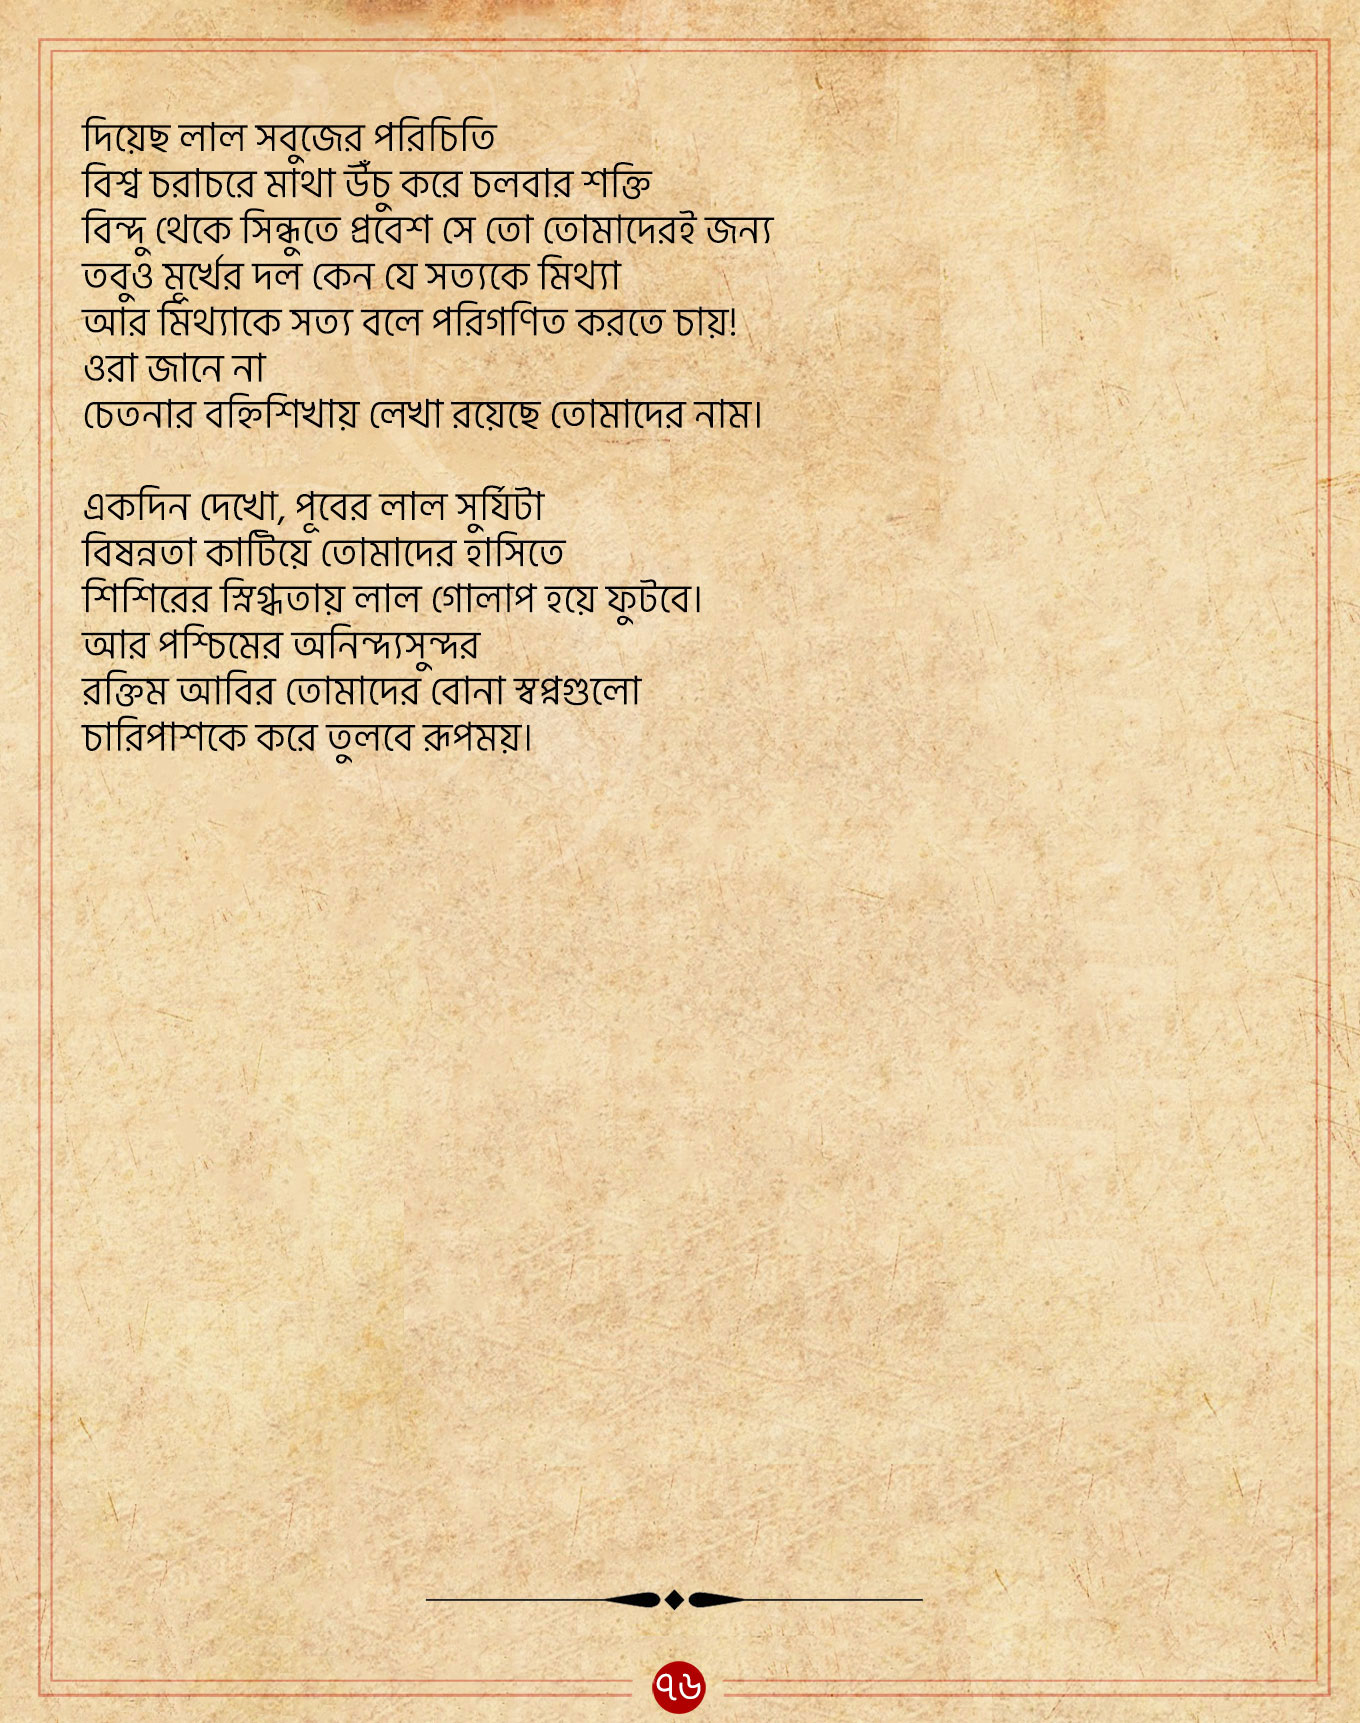 দিয়েছ লাল সবুজের পরিচিতি
বিশ্ব চরাচরে মাথা উঁচু করে চলবার শক্তি
বিন্দু থেকে সিন্ধুতে প্রবেশ সে তো তোমাদেরই জন্য
তবুও মূর্খের দল কেন যে সত্যকে মিথ্যা
আর মিথ্যাকে সত্য বলে পরিগণিত করতে চায়!
ওরা জানে না
চেতনার বহ্নিশিখায় লেখা রয়েছে তোমাদের নাম।
একদিন দেখো, পূবের লাল সুর্যিটা
বিষন্নতা কাটিয়ে তোমাদের হাসিতে
শিশিরের স্নিগ্ধতায় লাল গোলাপ হয়ে ফুটবে।
আর পশ্চিমের অনিন্দ্যসুন্দর
রক্তিম আবির তোমাদের বোনা স্বপ্নগুলো
চারিপাশকে করে তুলবে রূপময়।
৭৬